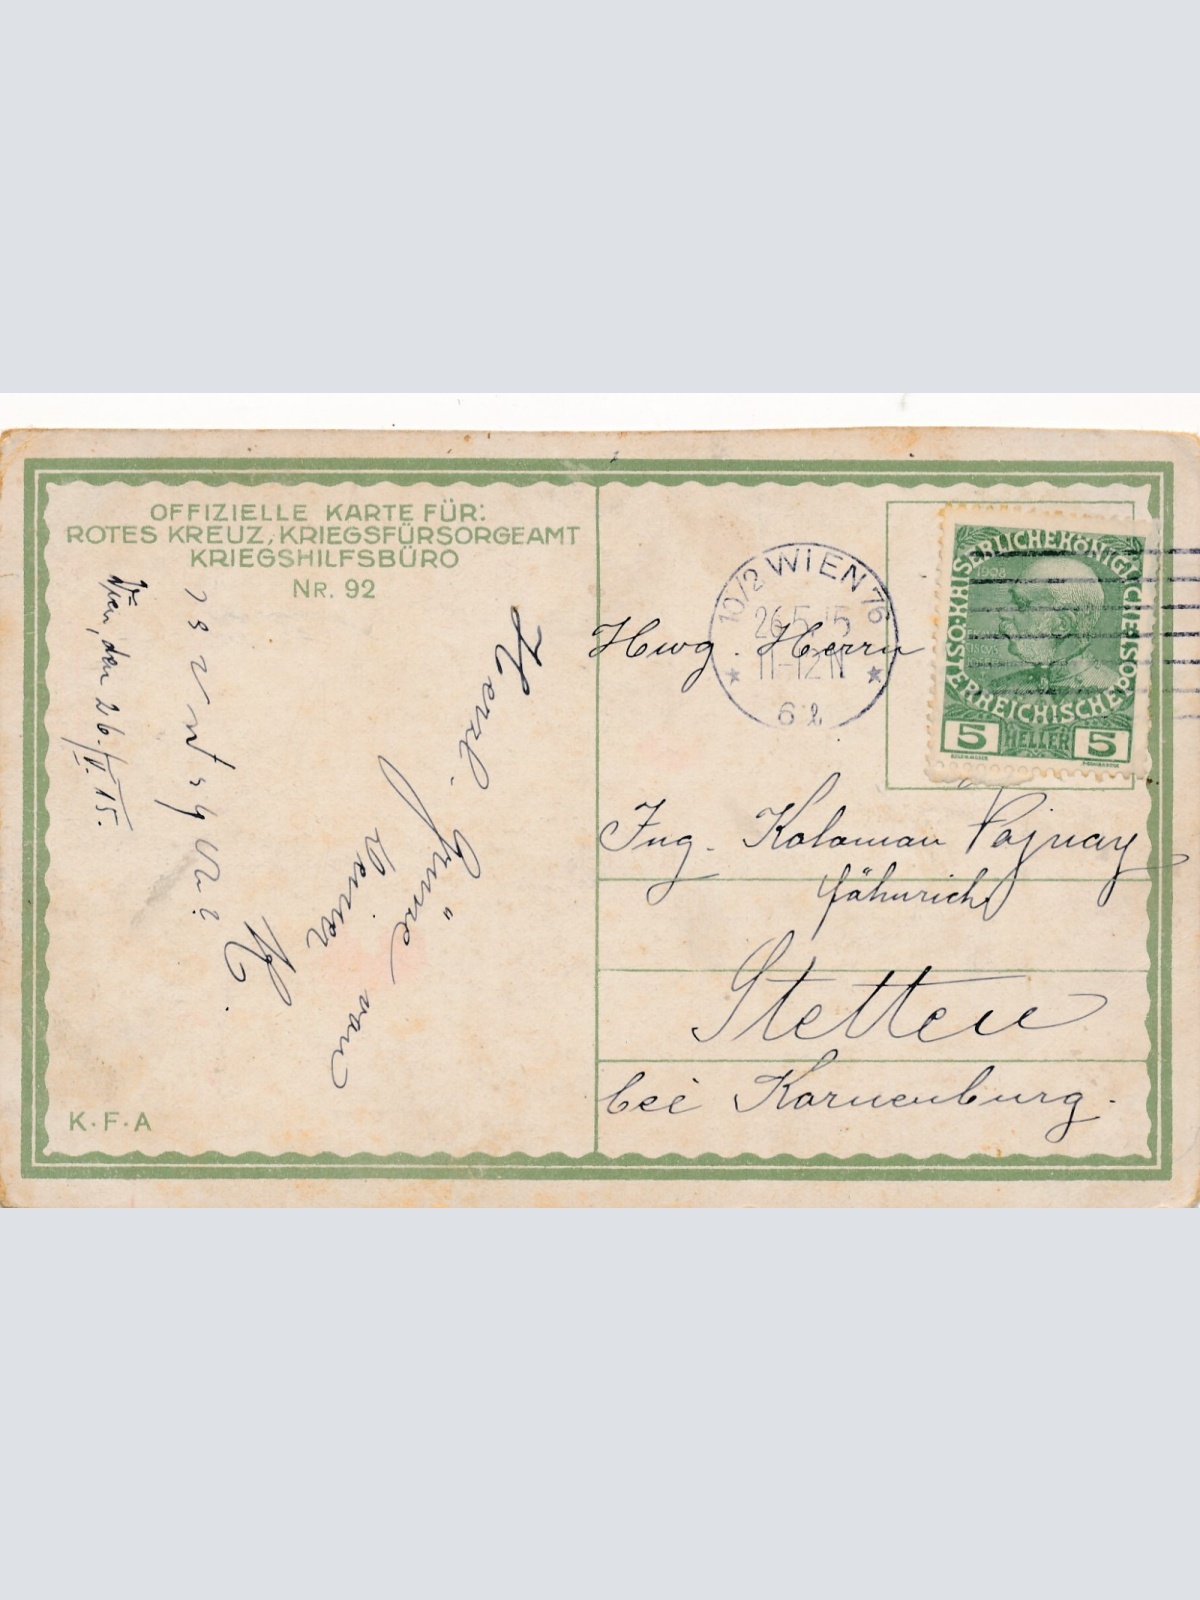 OFFIZIELLE KARTE FÜR:
ROTES KREUZ, KRIEGSFÜRSORGEAMT
KRIEGSHILFSBÜRO
NR. 92
Wien, den 26./V. 15.
Herzl. Grüsse von
Deiner
K·F·A
10/2 WIEN 76
26.5.15
11-12 N
KAISERLICHE KÖNIGLICHE ÖSTERREICHISCHE POST
1908
5 HELLER 5
Hwg. Herrn
Ing. Koloman Pajnay
Fähnrich
Stetten
bei Korneuburg.